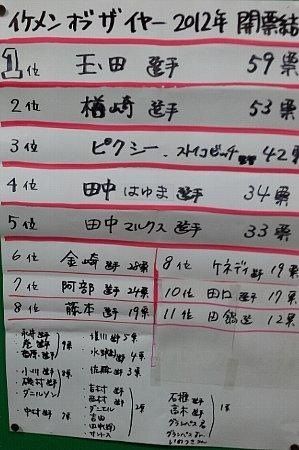 イケメン オブ ザ イヤー 2012年 開票結
1位 玉田 選手 59票
2位 楢崎 選手 53票
3位 ピクシー・ストイコビッチ 42票
4位 田中 はゆま 選手 34票
5位 田中 マルクス 選手 33票
6位 金崎 選手 28票
7位 阿部 選手 24票
8位 藤本 選手 19票
8位 ケネディ 選手 19票
10位 田口 選手 17票
11位 田鍋 選手 12票
・永井 選手
・小川 選手
・磯村 選手
・ダニルソン
・中村 選手
5票
・水野 選手 4票
・佐藤 選手 3票
・吉村 選手
・西村 選手
・ダニエル
・吉田
2票
石櫃 選手
高木 選手
1票